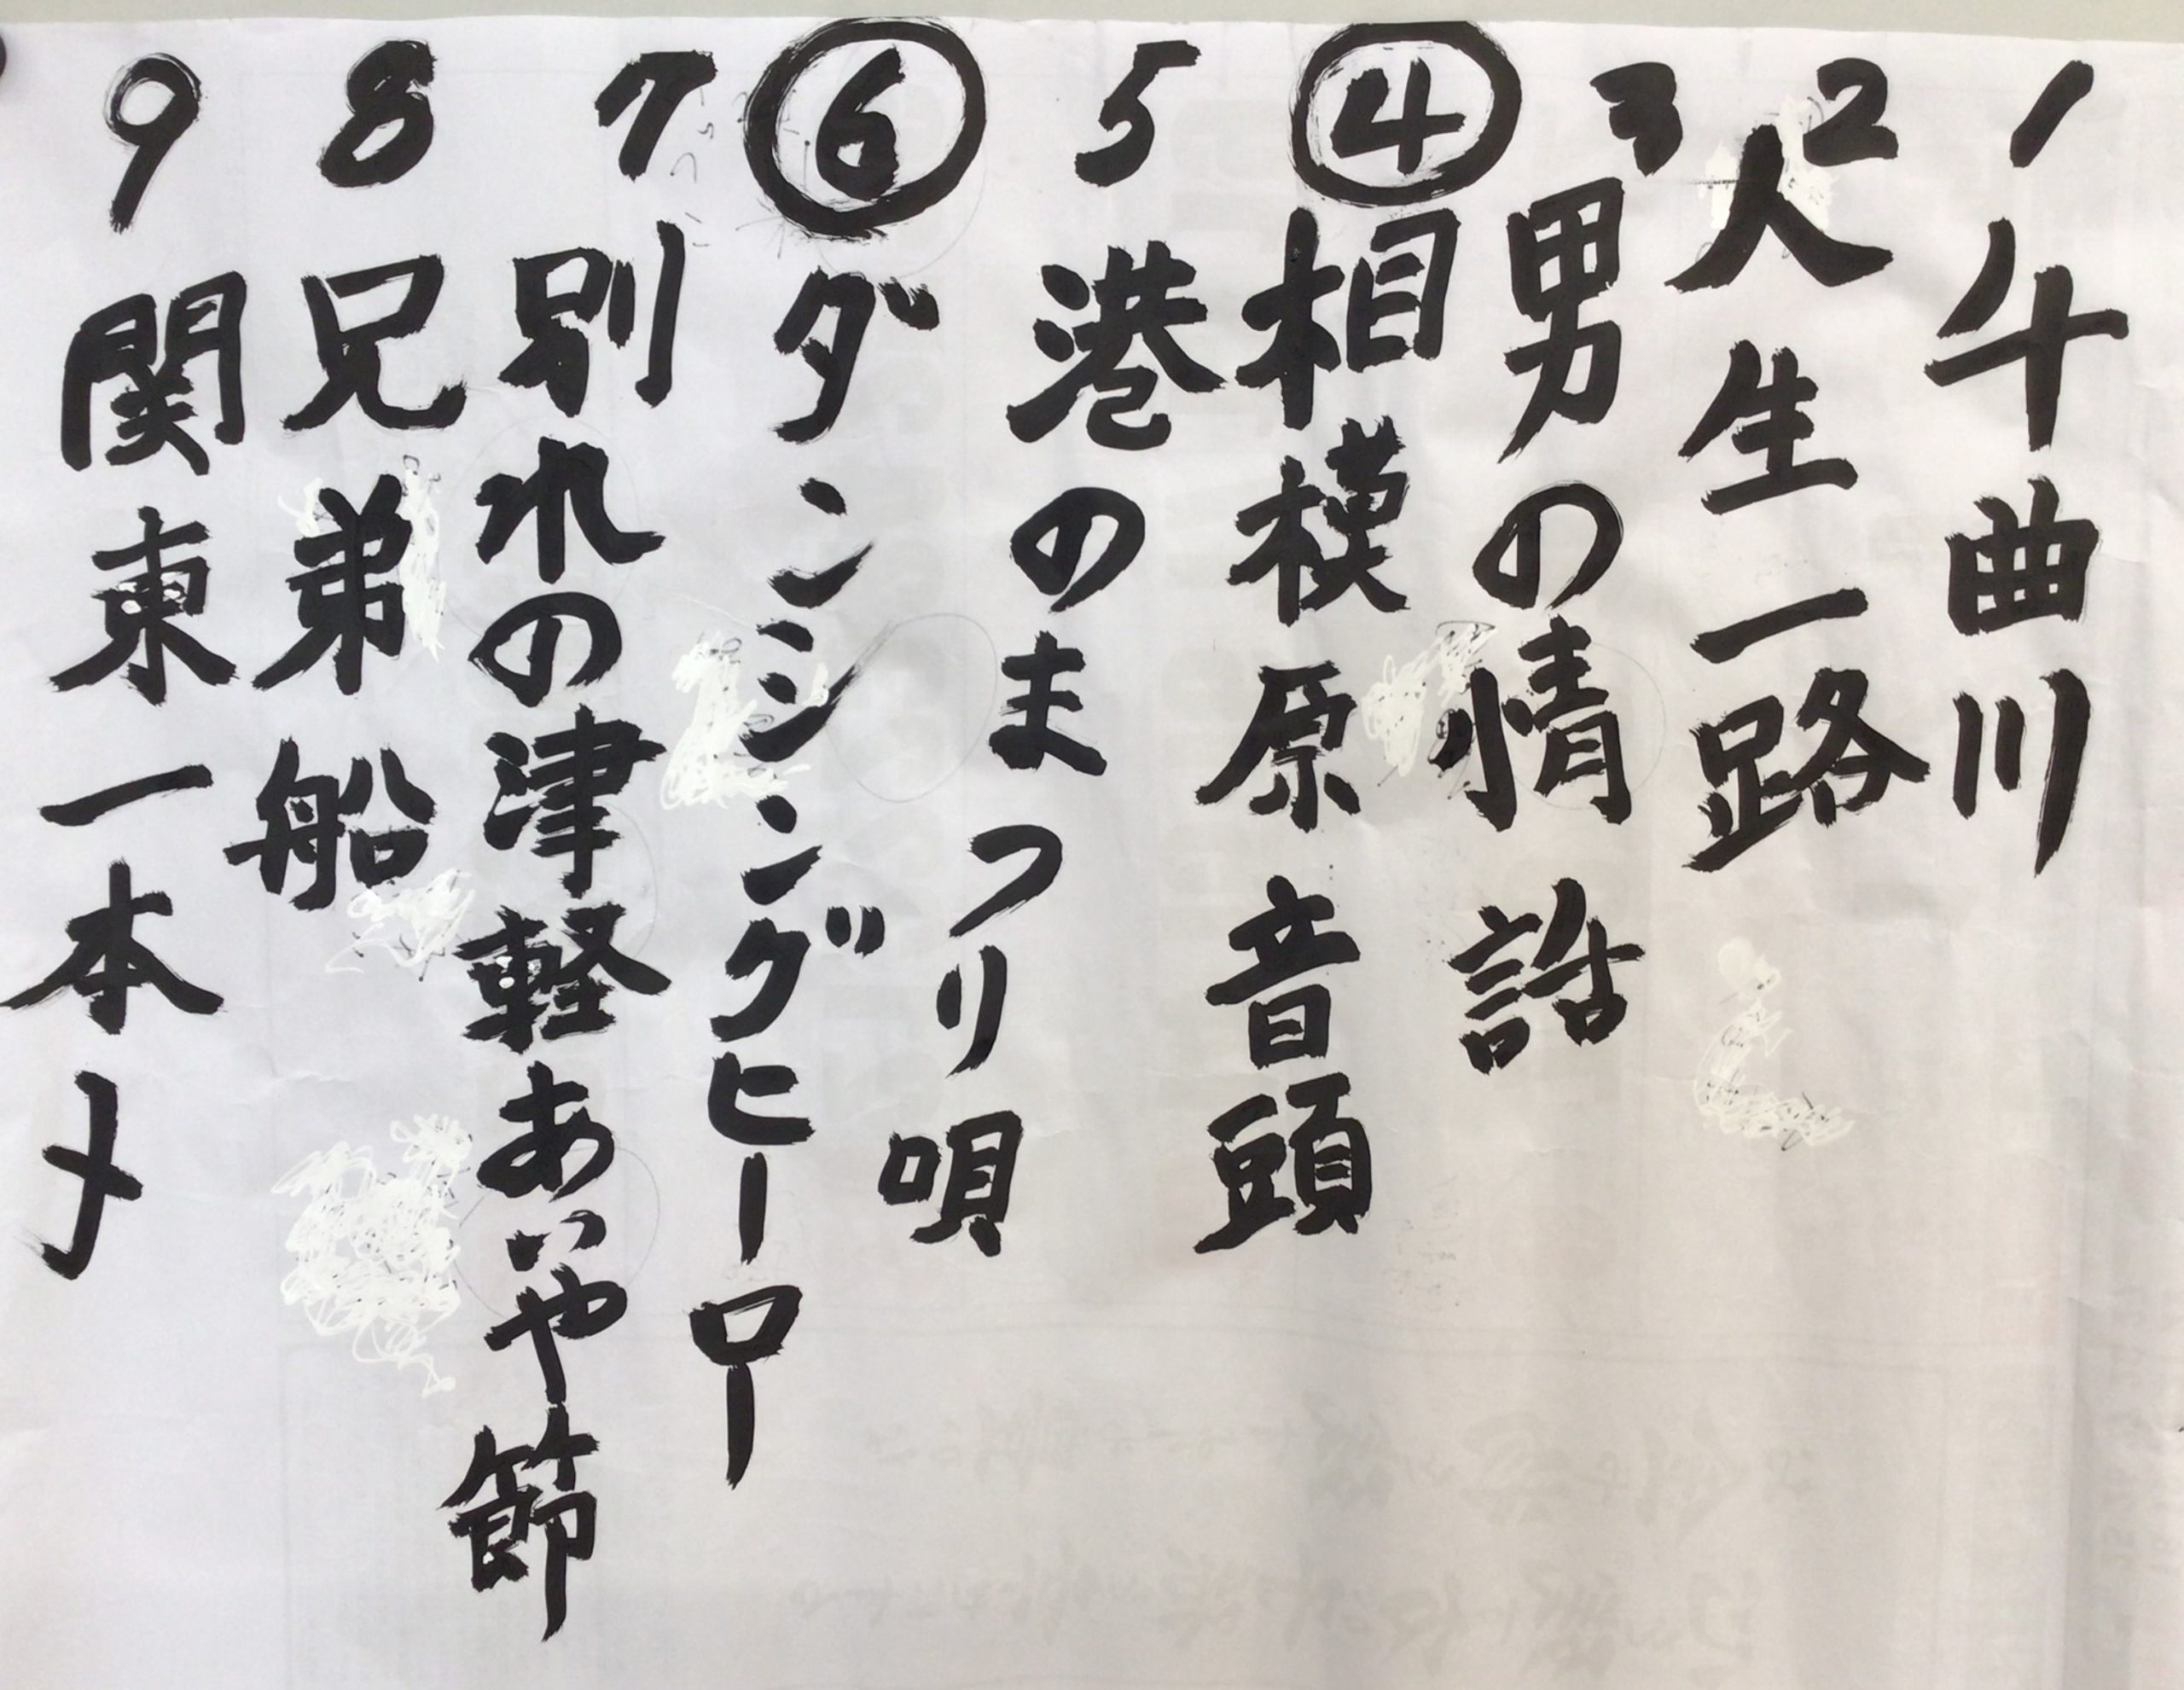 1 千曲川
2 人生一路
3 男の情話
④ 相模原音頭
5 港のまつり唄
⑥ ダンシングヒーロー
7 別れの津軽あいや節
8 兄弟船
9 関東一本〆